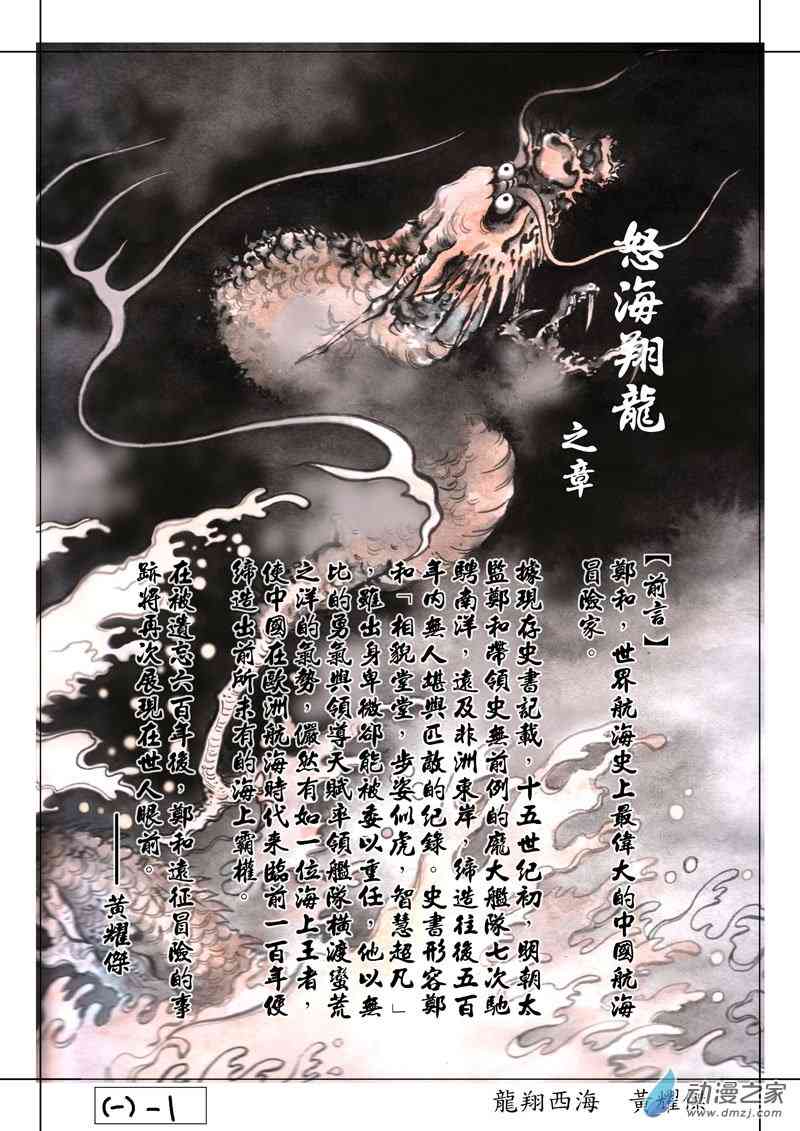 怒海翔龍
之章
【前言】
鄭和，世界航海史上最偉大的中國航海
冒險家。
據現存史書記載，十五世紀初，明朝太
監鄭和帶領史無前例的龐大艦隊七次馳
騁南洋，遠及非洲東岸，締造往後五百
年內無人堪與匹敵的紀錄。史書形容鄭
和「相貌堂堂，步姿似虎，智慧超凡」
，雖出身卑微卻能被委以重任，他以無
比的勇氣與領導天賦率領艦隊橫渡蠻荒
之洋的氣勢，儼然有如一位海上王者，
使中國在歐洲航海時代來臨前一百年便
締造出前所未有的海上霸權。
在被遺忘六百年後，鄭和遠征冒險的事
跡將再次展現在世人眼前。
——黃耀傑
(一)-1
龍翔西海　黃耀傑
动漫之家
www.dmzj.com